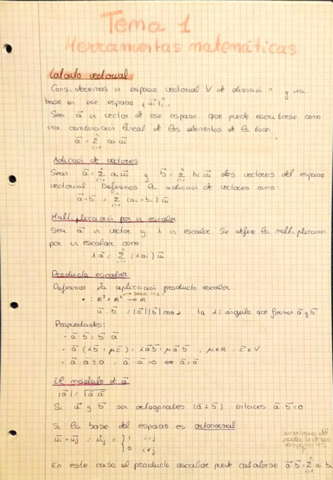 Tema 1
Herramientas matemáticas
Cálculo vectorial
Consideremos un espacio vectorial V de dimensión n y una
base en ese espacio
Sea a⃗ un vector de ese espacio que puede escribirse como
una combinación lineal de los elementos de la base
Adición de vectores
Sean a⃗ = Σ aᵢ u⃗ᵢ y b⃗ = Σ bᵢ u⃗ᵢ dos vectores del espacio
vectorial. Definimos la adición de vectores como
a⃗ + b⃗ = Σ (aᵢ + bᵢ) u⃗ᵢ
Multiplicación por un escalar
Sea a⃗ un vector y λ un escalar. Se define la multiplicación
por un escalar como
λ a⃗ = Σ (λaᵢ) u⃗ᵢ
Producto escalar
Definimos la aplicación producto escalar
a⃗ · b⃗ = |a⃗||b⃗| cos α la α ángulo que forman a⃗ y b⃗
Propiedades:
- a⃗ · b⃗ = b⃗ · a⃗
- a⃗ · (λb⃗ + μc⃗) = λa⃗ · b⃗ + μa⃗ ·
El módulo de a⃗
Si a⃗ y b⃗ son ortogonales (a⃗ ⊥ b⃗) entonces a⃗ · b⃗ = 0
Si la base del espacio es ortonormal
En este caso el producto escalar puede calcularse